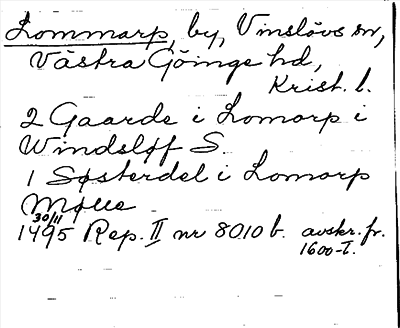 Lommarp, by, Vinslövs sn,
Västra Göinge hd,
Krist. l.
2 Gaarde i Lomorp i
Windsløf S.
1 Søsterdel i Lomorp
Mølle
30/11
1495 Rep. II nr 8010 b. avskr. fr.
1600-t.